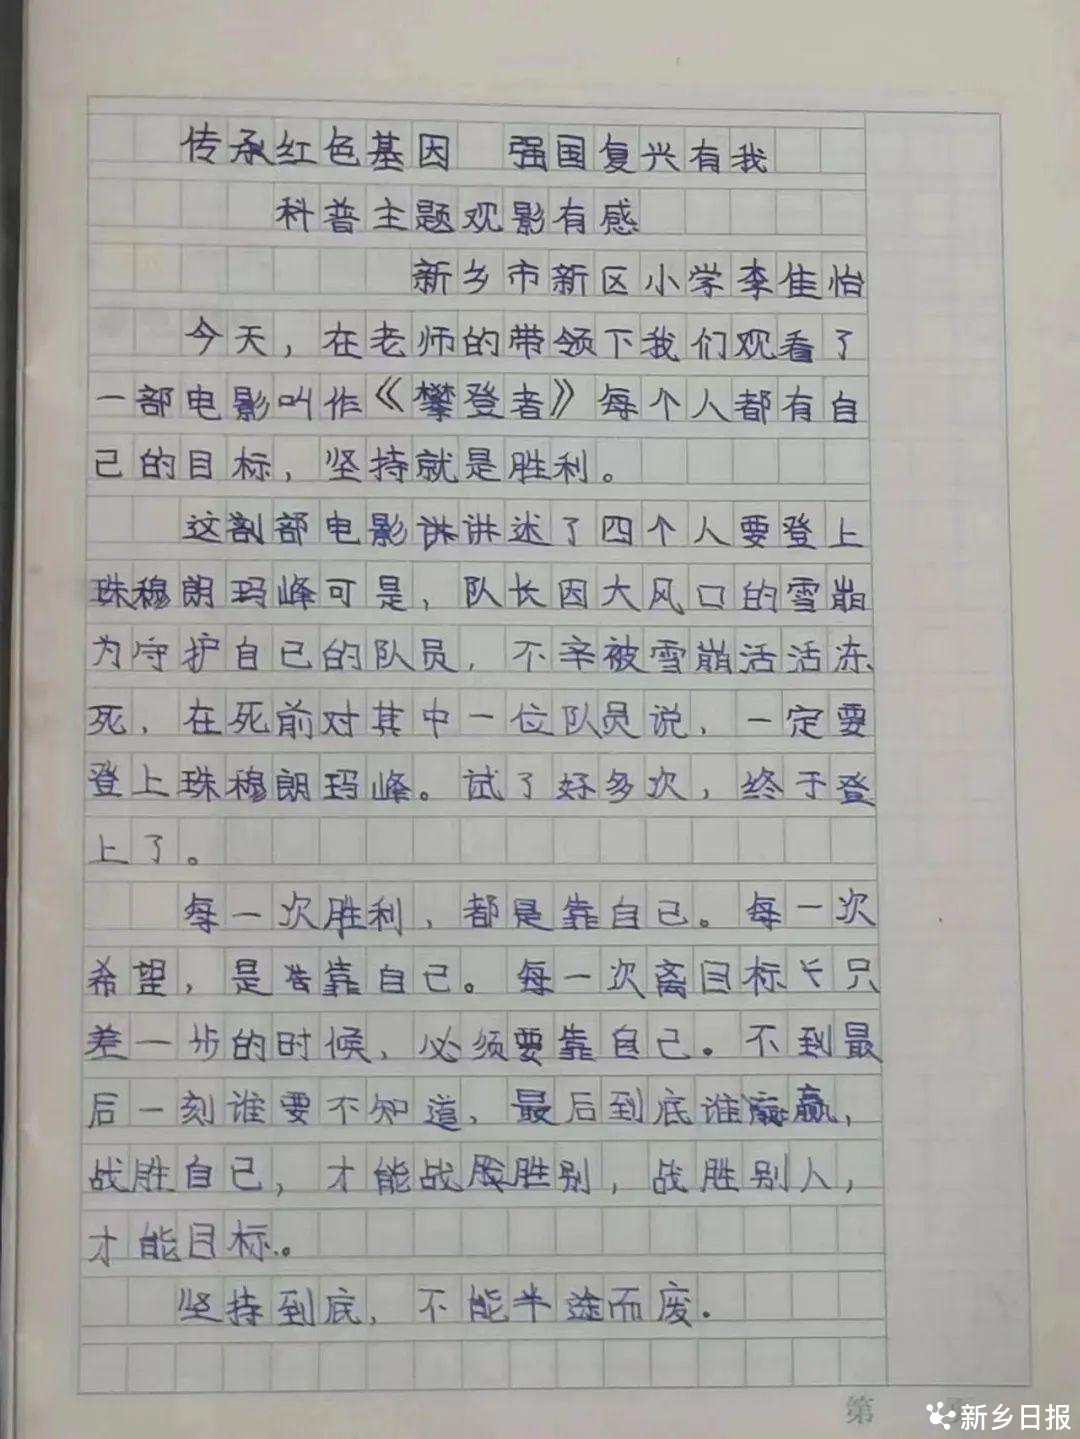 传承红色基因 强国复兴有我
科普主题观影有感
新乡市新区小学李佳怡
今天，在老师的带领下我们观看了
一部电影叫作《攀登者》每个人都有自
己的目标，坚持就是胜利。
这部电影讲述了四个人要登上
珠穆朗玛峰可是，队长因大风口的雪崩
为守护自己的队员，不辛被雪崩活活冻
死，在死前对其中一位队员说，一定要
登上珠穆朗玛峰。试了好多次，终于登
上了。
每一次胜利，都是靠自己。每一次
希望，是靠自己。每一次离目标只
差一步的时候，必须要靠自己。不到最
后一刻谁要不知道，最后到底谁赢，
战胜自己，才能战胜别，战胜别人，
才能目标。
坚持到底，不能半途而废.
第
新乡日报